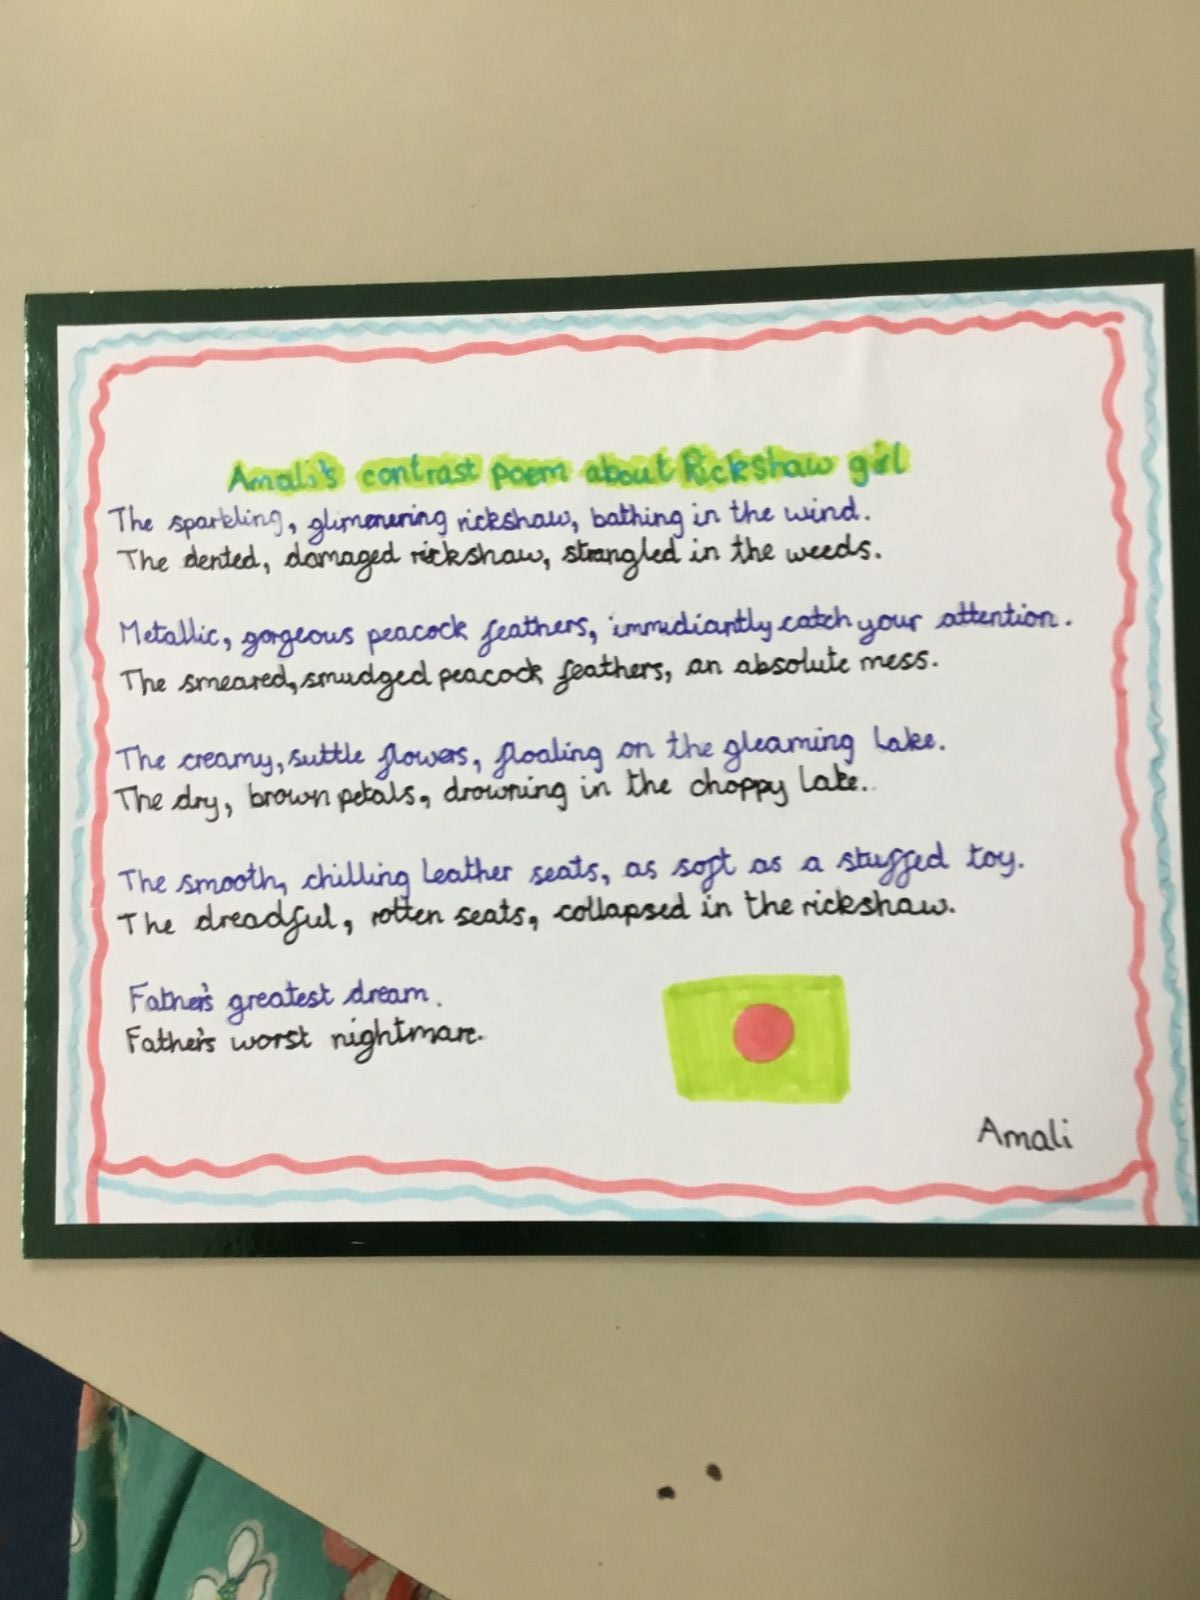 Amali's contrast poem about Rickshaw girl
The sparkling, glimmering rickshaw, bathing in the wind.
The dented, damaged rickshaw, strangled in the weeds.
Metallic, gorgeous peacock feathers, immidiantly catch your attention.
The smeared, smudged peacock feathers, an absolute mess.
The creamy, suttle flowers, floating on the gleaming lake.
The dry, brown petals, drowning in the choppy lake.
The smooth, chilling leather seats, as soft as a stuffed toy.
The dreadful, rotten seats, collapsed in the rickshaw.
Father's greatest dream.
Father's worst nightmare.
Amali